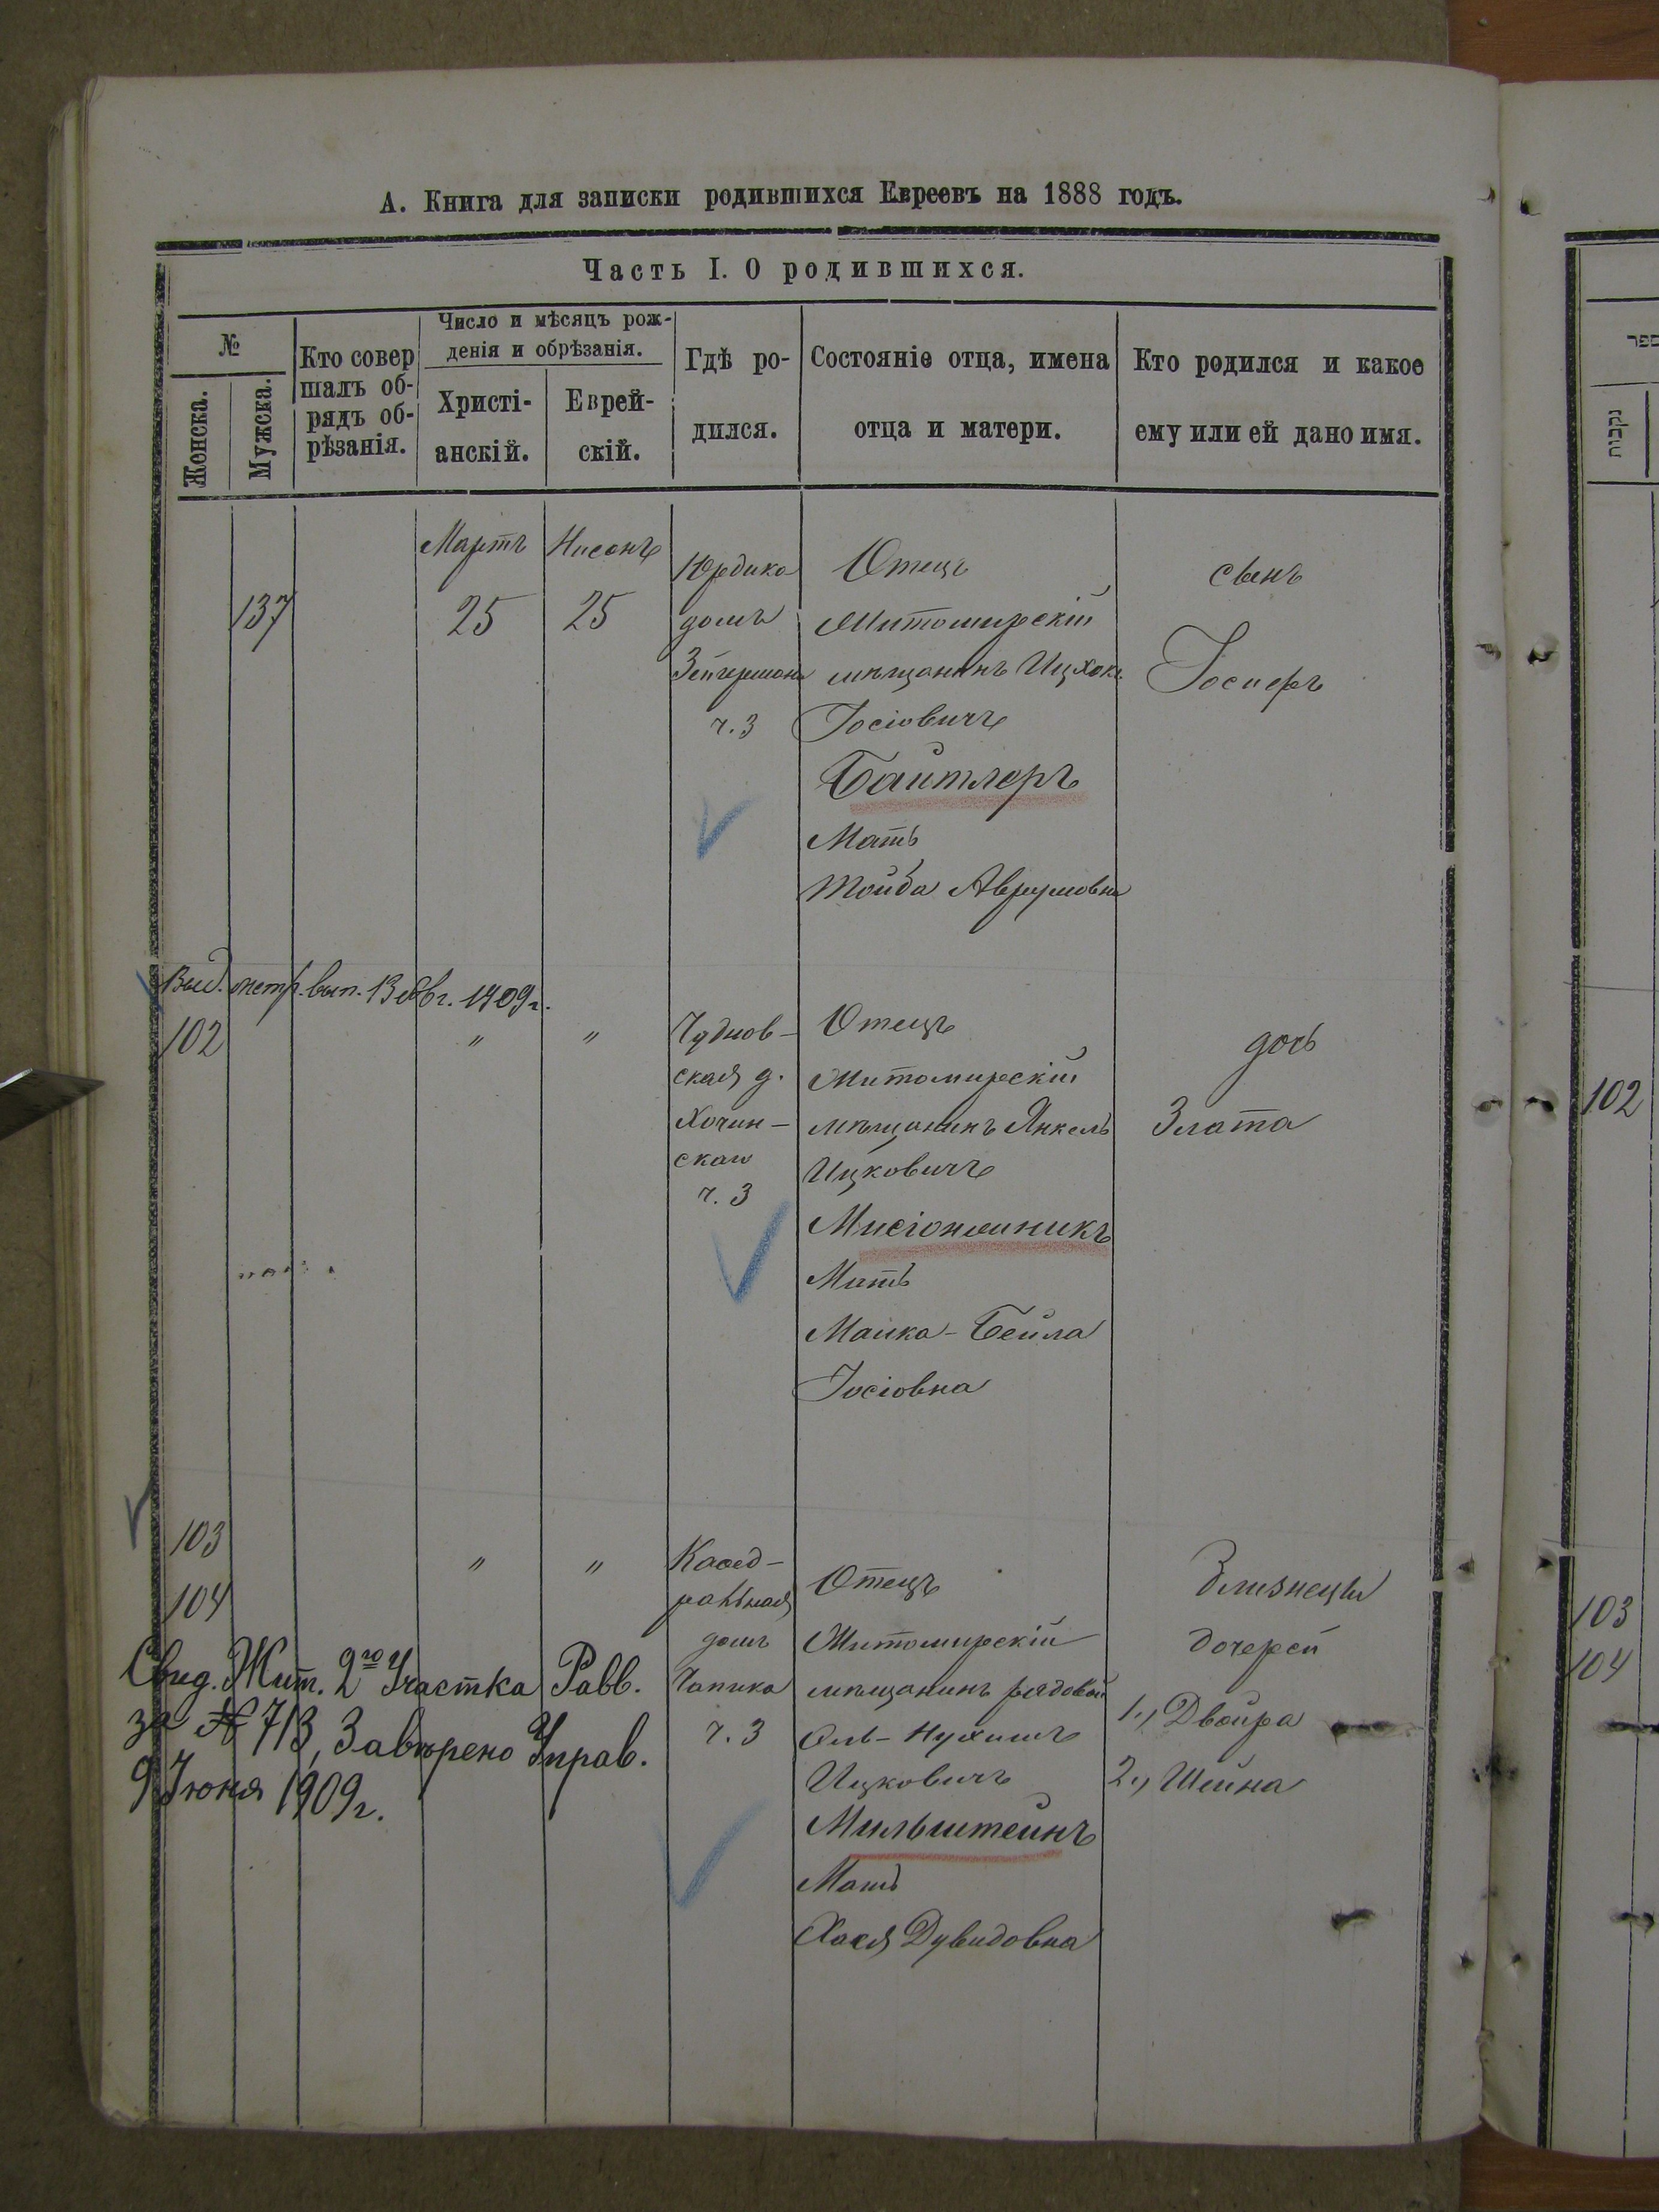 А. Книга для записки родившихся Евреевъ на 1888 годъ.
Часть I. О родившихся.
№
Женска.
Мужска.
Кто совер
шалъ об-
рядъ об-
рѣзанія.
Число и мѣсяцъ рож-
денія и обрѣзанія.
Христі-
анскій.
Еврей-
скій.
Гдѣ ро-
дился.
Состояніе отца, имена
отца и матери.
Кто родился и какое
ему или ей дано имя.
137
Мартъ
25
Нисонъ
25
домъ
ч. 3
Отецъ
Житомирскій
мѣщанинъ Ицхокъ
Іосіовичъ
Байтлеръ
Мать
Тойба Аврумовна
сынъ
Іосифъ
Выд. метр. вып. 1909 г.
102
"
"
Чуднов-
ская д.
Хочин-
ская
ч. 3
Отецъ
Житомирскій
мѣщанинъ Янкель
Ицковичъ
Мисіонжникъ
Мать
Малка-Бейла
Іосіовна
дочь
Злата
103
104
"
"
Каѳед-
ральная
домъ
Чапика
ч. 3
Отецъ
Житомирскій
мѣщанинъ рядовой
Нухимъ
Ицковичъ
Мильштейнъ
Мать
Хася Дувидовна
близнецы
дочерей
1, Двойра
2, Шейна
Свид. Жит. 2го Участка Равв.
за № 713, Завѣрено Управ.
9 Іюня 1909 г.
ספר
נקבות
102
103
104